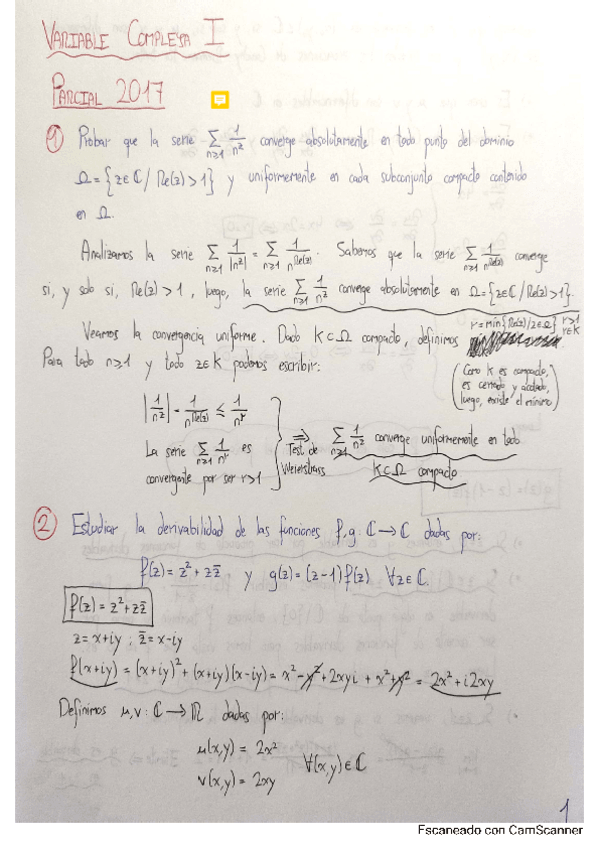 VARIABLE COMPLEJA I
PARCIAL 2017
① Probar que la serie ∑_{n≥1} 1/n^z converge absolutamente en todo punto del dominio
Ω = {z∈ℂ / Re(z) > 1} y uniformemente en cada subconjunto compacto contenido
en Ω.
Analizamos la serie ∑_{n≥1} 1/|n^z| = ∑_{n≥1} 1/n^{Re(z)}. Sabemos que la serie ∑_{n≥1} 1/n^{Re(z)} converge
si, y solo si, Re(z) > 1, luego, la serie ∑_{n≥1} 1/n^z converge absolutamente en Ω = {z∈ℂ / Re(z) > 1}.
Veamos la convergencia uniforme. Dado K⊂Ω compacto, definimos r = min{Re(z) / z∈Ω} r>1 r∈K
Para todo n≥1 y todo z∈K podemos escribir:
(Como K es compacto,
es cerrado y acotado,
luego, existe el mínimo)
|1/n^z| = 1/n^{Re(z)} ≤ 1/n^r
La serie ∑_{n≥1} 1/n^r es
convergente por ser r>1
⟹ Test de Weierstrass
∑_{n≥1} 1/n^z converge uniformemente en todo
K⊂Ω compacto
② Estudiar la derivabilidad de las funciones f,g: ℂ → ℂ dadas por:
f(z) = z² + z z̄ y g(z) = (z-1) f(z), ∀z∈ℂ.
f(z) = z² + z z̄
z = x+iy ; z̄ = x-iy
f(x+iy) = (x+iy)² + (x+iy)(x-iy) = x² - y² + 2xyi + x² + y² = 2x² + i2xy
Definimos u,v: ℂ → ℝ dadas por:
u(x,y) = 2x²
v(x,y) = 2xy
∀(x,y)∈ℂ
1
Escaneado con CamScanner